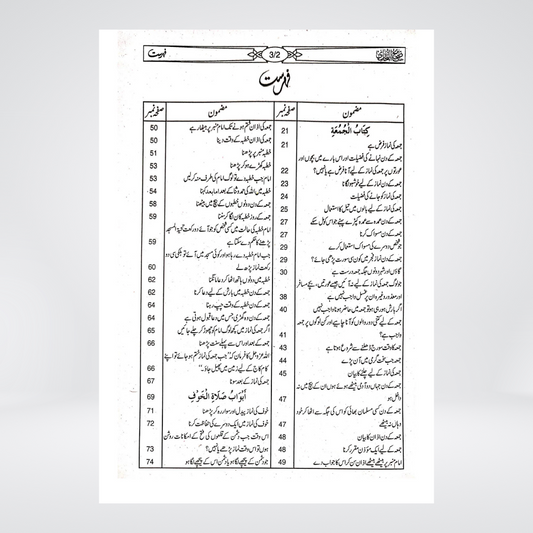 فہرست
3/2
فہرست
صفحہ نمبر
مضمون
كِتَابُ الْجُمُعَةِ 21
جمعہ کی نماز فرض ہے 21
جمعہ کے دن نہانے کی فضیلت اور اس بارے میں بچوں اور
عورتوں پر جمعہ کی نماز کے لیے آنا فرض ہے یا نہیں؟ 22
جمعہ کے دن نماز کے لیے خوشبو لگانا 23
جمعہ کی نماز کو جانے کی فضیلت 24
جمعہ کی نماز کے لیے بالوں میں تیل کا استعمال 25
جمعہ کے دن عمدہ سے عمدہ کپڑے پہنے جو اس کو مل سکے 27
جمعہ کے دن مسواک کرنا 27
جو شخص دوسرے کی مسواک استعمال کرے 29
جمعہ کے دن نماز فجر میں کون سی سورت پڑھی جائے؟ 29
گاؤں اور شہر دونوں جگہ جمعہ درست ہے 30
جو لوگ جمعہ کی نماز کے لیے نہ آئیں جیسے عورتیں، بچے، مسافر
اور معذور وغیرہ ان پر غسل واجب نہیں ہے 38
اگر بارش ہو رہی ہو تو جمعہ میں حاضر ہونا واجب نہیں 40
جمعہ کے لیے کتنی دور والوں کو آنا چاہیے اور کن لوگوں پر جمعہ
واجب ہے؟ 41
جمعہ کا وقت سورج ڈھلنے سے شروع ہوتا ہے 43
جمعہ جب سخت گرمی میں آن پڑے 44
جمعہ کی نماز کے لیے چلنے کا بیان 45
جمعہ کے دن جہاں دو آدمی بیٹھے ہوئے ہوں ان کے بیچ میں نہ
داخل ہو 47
جمعہ کے دن کسی مسلمان بھائی کو اس کی جگہ سے اٹھا کر خود
وہاں نہ بیٹھے 47
جمعہ کے دن اذان کا بیان 48
جمعہ کے لیے ایک مؤذن مقرر کرنا 48
امام منبر پر بیٹھے بیٹھے اذان سن کر اس کا جواب دے 49
صفحہ نمبر
مضمون
جمعہ کی اذان ختم ہونے تک امام منبر پر بیٹھا رہے 50
جمعہ کی اذان خطبہ کے وقت دینا 50
خطبہ منبر پر پڑھنا 51
خطبہ کھڑے ہو کر پڑھنا 53
امام جب خطبہ دے تو لوگ امام کی طرف منہ کر لیں 53
خطبہ میں اللہ کی حمد و ثنا کے بعد اما بعد کہنا 54
جمعہ کے دن دونوں خطبوں کے بیچ میں بیٹھنا 58
جمعہ کے روز خطبہ کان لگا کر سننا 58
امام خطبہ کی حالت میں کسی شخص کو جو آئے دو رکعت تحیۃ المسجد
پڑھنے کا حکم دے سکتا ہے 59
جب امام خطبہ دے رہا ہو اور کوئی مسجد میں آئے تو ہلکی سی دو
رکعت نماز پڑھ لے 60
خطبہ میں دونوں ہاتھ اٹھا کر دعا مانگنا 62
جمعہ کے خطبہ میں بارش کے لیے دعا کرنا 62
جمعہ کے دن خطبہ کے وقت چپ رہنا 64
جمعہ کے دن وہ گھڑی جس میں دعا قبول ہوتی ہے 64
اگر جمعہ کی نماز میں کچھ لوگ امام کو چھوڑ کر چلے جائیں 65
جمعہ کے بعد اور اس سے پہلے سنت پڑھنا 66
اللہ عزوجل کا فرمان کہ "جب جمعہ کی نماز ختم ہو جائے تو اپنے
کام کاج کے لیے زمین میں پھیل جاؤ۔۔" 66
جمعہ کی نماز کے بعد سونا 67
أَبْوَابُ صَلَاةِ الْخَوْفِ 69
خوف کی نماز پیدل اور سوار ہو کر پڑھنا 71
خوف کی نماز میں ایک دوسرے کی حفاظت کرنا 72
اس وقت جب دشمن کے قلعوں کی فتح کے امکانات روشن
ہوں تو اس وقت نماز پڑھے یا نہیں؟ 73
جو دشمن کے پیچھے لگا ہو یا دشمن اس کے پیچھے لگا ہو 74